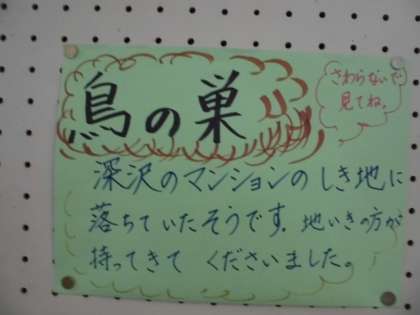 鳥の巣
さわらないで
見てね。
深沢のマンションのしき地に
落ちていたそうです。地いきの方が
持ってきて くださいました。